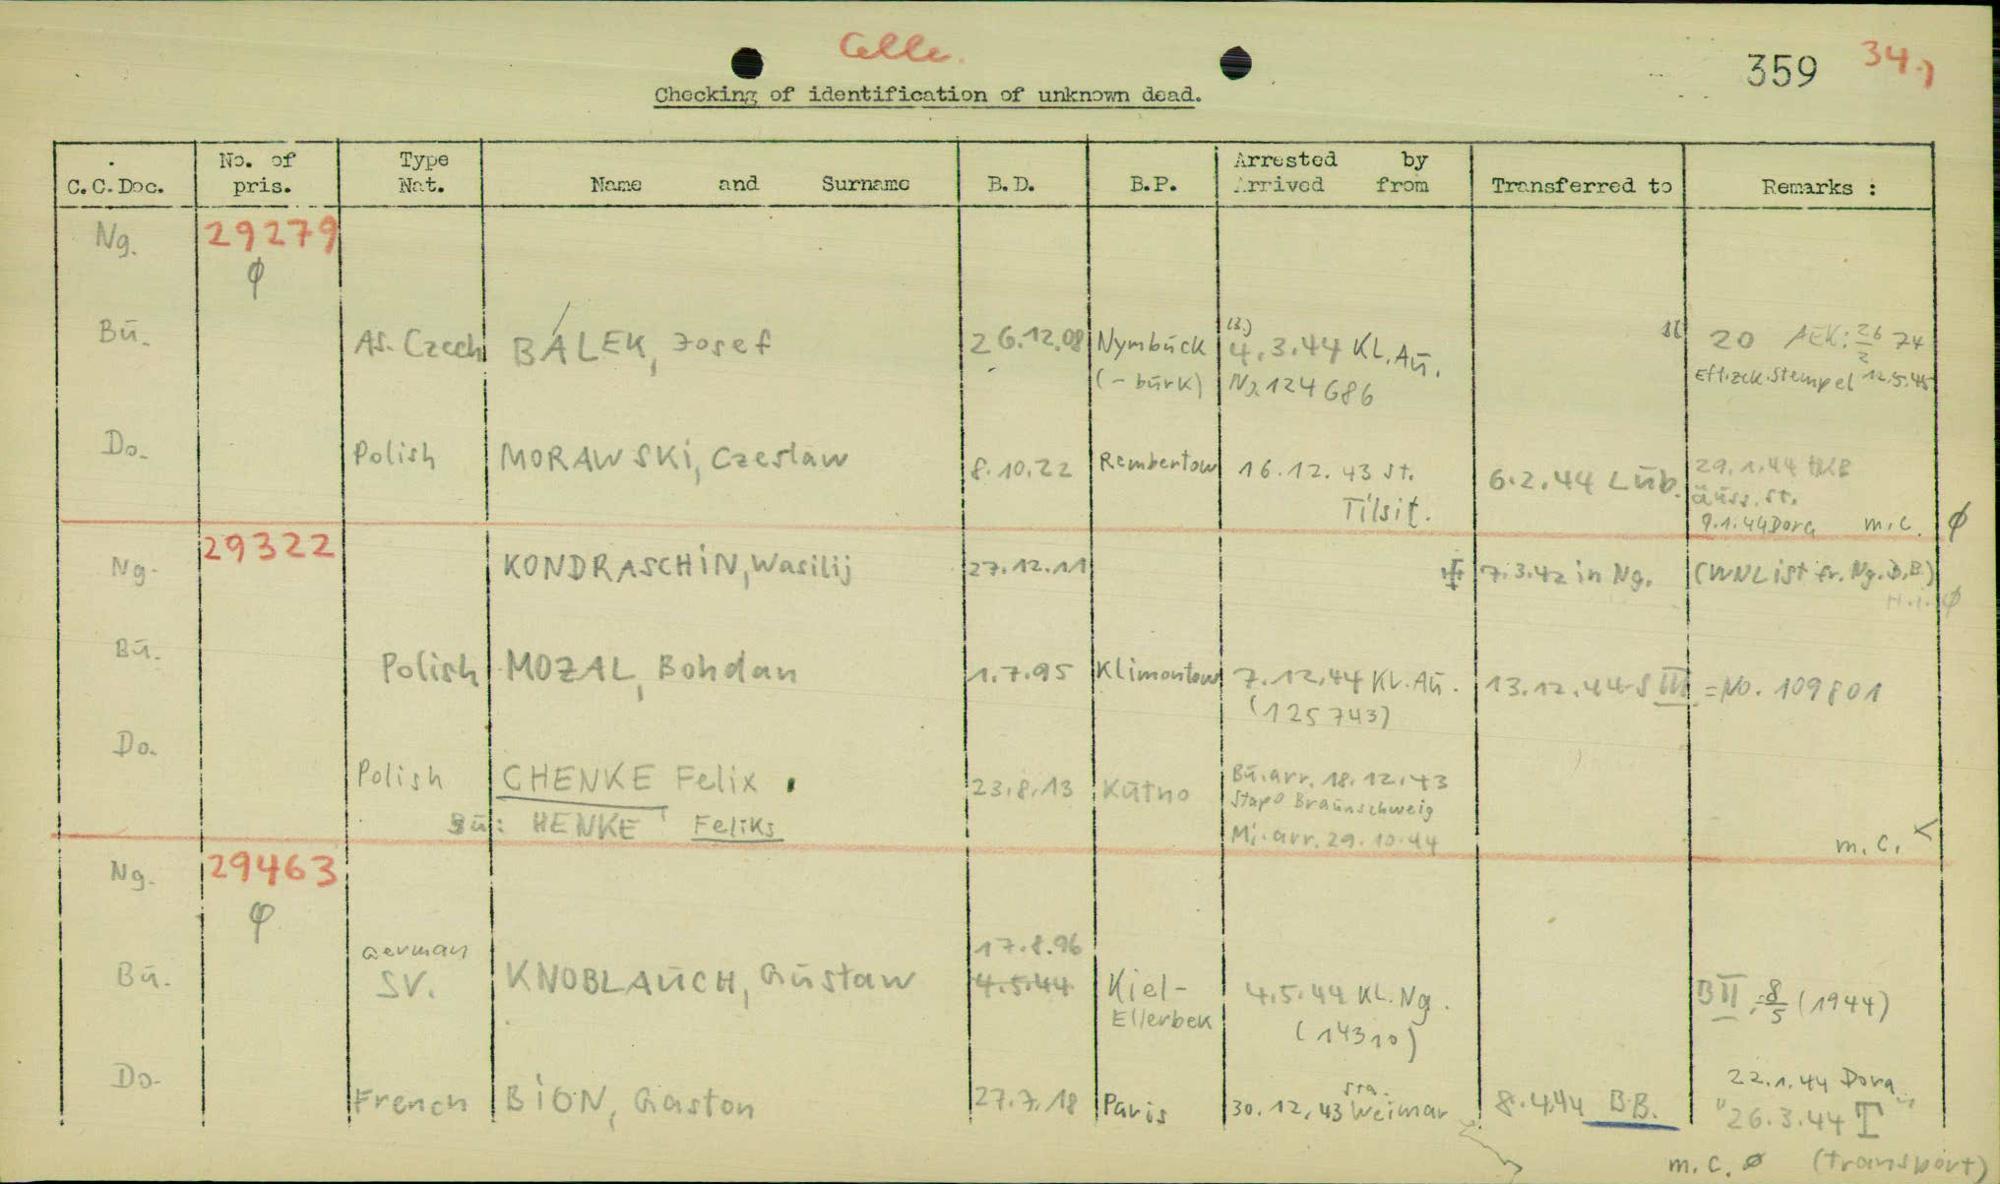 Celle.
359 34.)
Checking of identification of unknown dead.
C.C.Doc. No. of pris. Type Nat. Name and Surname B.D. B.P. Arrested by Arrived from Transferred to Remarks :
Ng. 29279
φ
Bū. As. Czech BÁLEK, Josef 26.12.08 Nymbūck 4.3.44 KL. Aū. 20 AEK: 26/2 74
(-būrk) No. 124686 Eff.zck. Stempel 12.5.45
Do. Polish MORAWSKI, Czeslaw 8.10.22 Rembertow 16.12.43 St. 6.2.44 Lūb. 29.1.44
Tilsit. äuss. St.
9.1.44 Dora m.c. φ
Ng. 29322 KONDRASCHIN, Wasilij 27.12.11 7.3.42 in Ng. (WNList fr. Ng. D.B.)
φ
Bū. Polish MOZAL, Bohdan 1.7.95 Klimontow 7.12.44 KL. Aū. 13.12.44 S III = No. 109801
(125743)
Do. Polish CHENKE Felix 23.8.13 Kūtno Bū. arr. 18.12.43
Stapo Braūnschweig
Bū: HENKE Feliks Mi. arr. 29.10.44 m.c.
Ng. 29463
φ
German 17.8.96
Bū. SV. KNOBLAūCH, Gūstaw 4.5.44 Kiel- 4.5.44 KL. Ng. B II 8/5 (1944)
Ellerbek (14310)
Do. French BION, Gaston 27.7.18 Paris 30.12.43 Weimar 8.4.44 B.B. 22.1.44 Dora
"26.3.44 T
m.c. φ (transport)